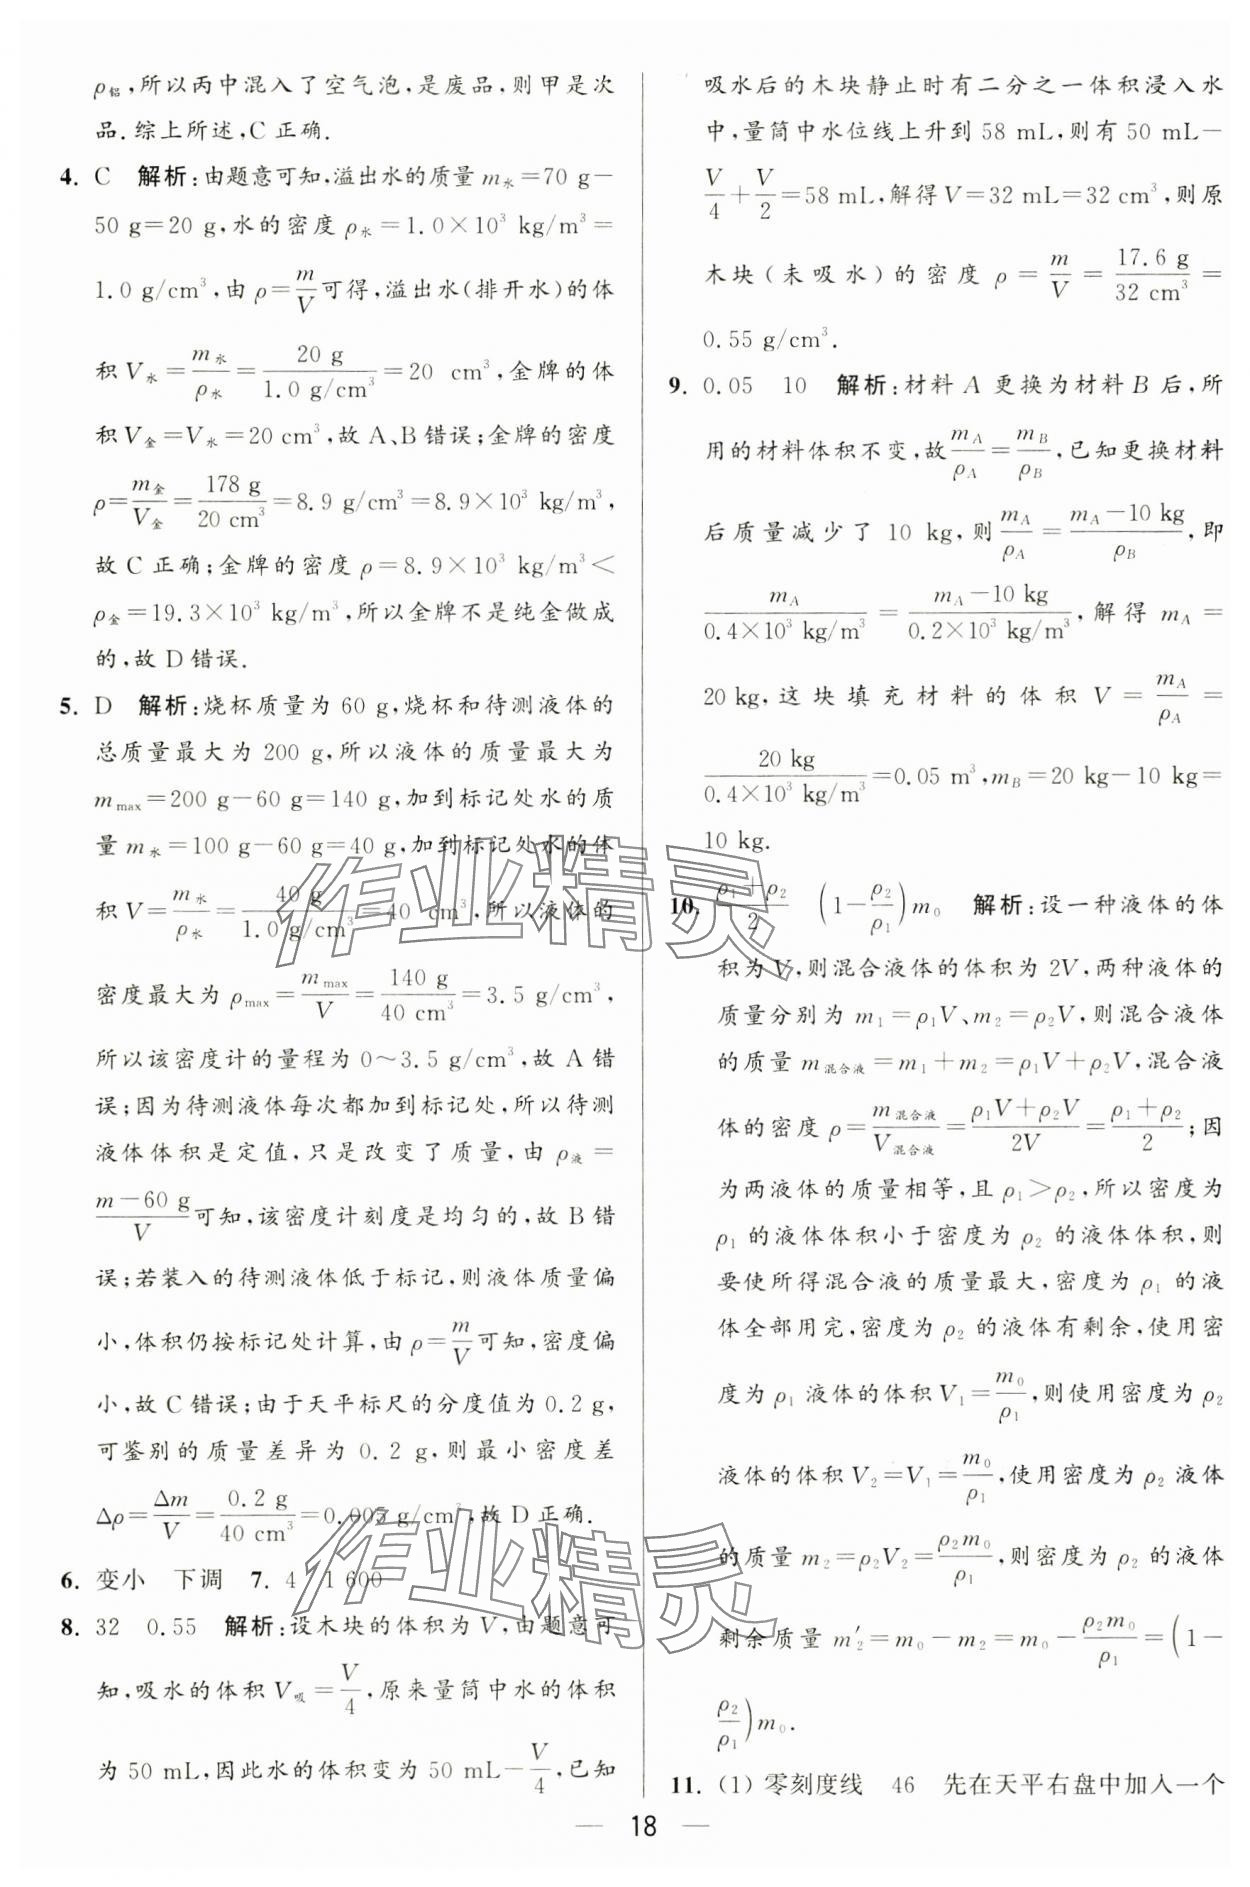 ρ铝,所以丙中混入了空气泡,是废品,则甲是次
品.综上所述,C正确.
4. C 解析:由题意可知,溢出水的质量m水=70 g-
50 g=20 g,水的密度ρ水=1.0×10³ kg/m³=
1.0 g/cm³,由ρ=m/V可得,溢出水(排开水)的体
积V水=m水/ρ水=20 g/1.0 g/cm³=20 cm³,金牌的体
积V金=V水=20 cm³,故A、B错误;金牌的密度
ρ=m金/V金=178 g/20 cm³=8.9 g/cm³=8.9×10³ kg/m³,
故C正确;金牌的密度ρ=8.9×10³ kg/m³<
ρ金=19.3×10³ kg/m³,所以金牌不是纯金做成
的,故D错误.
5. D 解析:烧杯质量为60 g,烧杯和待测液体的
总质量最大为200 g,所以液体的质量最大为
m max=200 g-60 g=140 g,加到标记处水的质
量m水=100 g-60 g=40 g,加到标记处水的体
积V=m水/ρ水=40 g/1.0 g/cm³=40 cm³,所以液体的
密度最大为ρmax=m max/V=140 g/40 cm³=3.5 g/cm³,
所以该密度计的量程为0~3.5 g/cm³,故A错
误;因为待测液体每次都加到标记处,所以待测
液体体积是定值,只是改变了质量,由ρ液=
m-60 g/V可知,该密度计刻度是均匀的,故B错
误;若装入的待测液体低于标记,则液体质量偏
小,体积仍按标记处计算,由ρ=m/V可知,密度偏
小,故C错误;由于天平标尺的分度值为0.2 g,
可鉴别的质量差异为0.2 g,则最小密度差
Δρ=Δm/V=0.2 g/40 cm³=0.005 g/cm³,故D正确.
6. 变小 下调 7. 4 1 600
8. 32 0.55 解析:设木块的体积为V,由题意可
知,吸水的体积V吸=V/4,原来量筒中水的体积
为50 mL,因此水的体积变为50 mL-V/4,已知
吸水后的木块静止时有二分之一体积浸入水
中,量筒中水位线上升到58 mL,则有50 mL-
V/4+V/2=58 mL,解得V=32 mL=32 cm³,则原
木块(未吸水)的密度ρ=m/V=17.6 g/32 cm³=
0.55 g/cm³.
9. 0.05 10 解析:材料A更换为材料B后,所
用的材料体积不变,故mA/ρA=mB/ρB,已知更换材料
后质量减少了10 kg,则mA/ρA=mA-10 kg/ρB,即
mA/0.4×10³ kg/m³=mA-10 kg/0.2×10³ kg/m³,解得mA=
20 kg,这块填充材料的体积V=mA/ρA=
20 kg/0.4×10³ kg/m³=0.05 m³,mB=20 kg-10 kg=
10 kg.
10. ρ1+ρ2/2 (1-ρ2/ρ1)m0 解析:设一种液体的体
积为V,则混合液体的体积为2V,两种液体的
质量分别为m1=ρ1V、m2=ρ2V,则混合液体
的质量m混合液=m1+m2=ρ1V+ρ2V,混合液
体的密度ρ=m混合液/V混合液=ρ1V+ρ2V/2V=ρ1+ρ2/2;因
为两液体的质量相等,且ρ1>ρ2,所以密度为
ρ1的液体体积小于密度为ρ2的液体体积,则
要使所得混合液的质量最大,密度为ρ1的液
体全部用完,密度为ρ2的液体有剩余,使用密
度为ρ1液体的体积V1=m0/ρ1,则使用密度为ρ2
液体的体积V2=V1=m0/ρ1,使用密度为ρ2液体
的质量m2=ρ2V2=ρ2m0/ρ1,则密度为ρ2的液体
剩余质量m′2=m0-m2=m0-ρ2m0/ρ1=(1-
ρ2/ρ1)m0.
11. (1) 零刻度线 46 先在天平右盘中加入一个
18
作业精灵
作业精灵